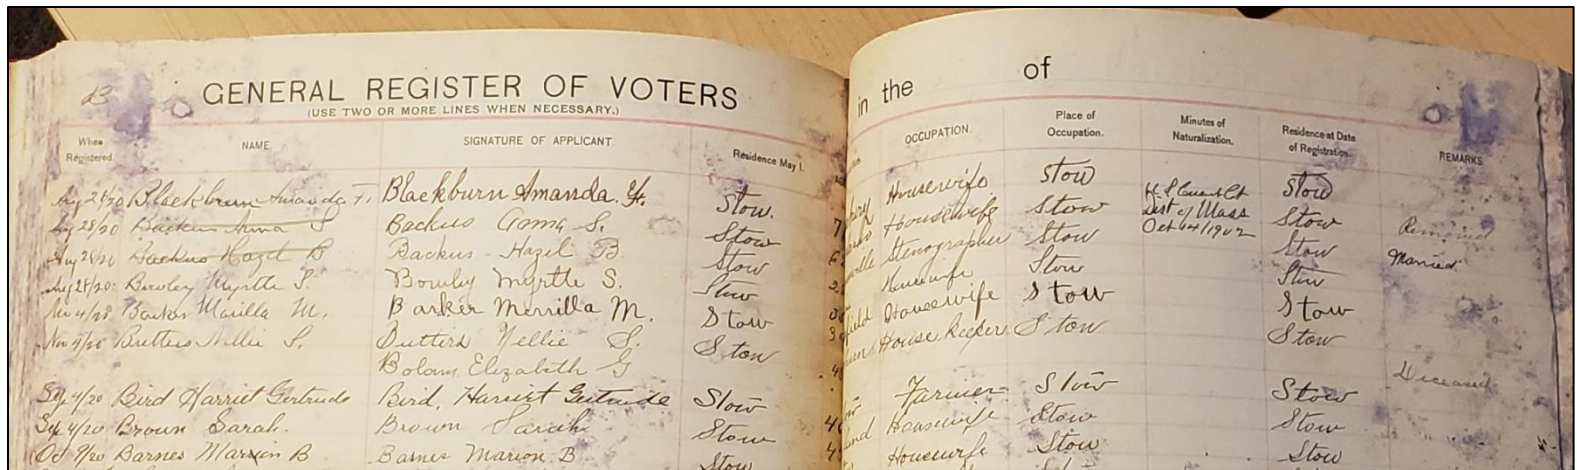 B
GENERAL REGISTER OF VOTERS in the of
(USE TWO OR MORE LINES WHEN NECESSARY.)
When Registered. NAME. SIGNATURE OF APPLICANT. Residence May 1. OCCUPATION. Place of Occupation. Minutes of Naturalization. Residence at Date of Registration. REMARKS.
Aug 28/20 Blackburn Amanda F. Blackburn Amanda F. Stow. Housewife Stow U.S. Court Stow
Aug 28/20 Backus Anna S Backus Anna S. Stow Housewife Stow Dist of Mass Stow Removed
Aug 28/20 Backus Hazel B Backus - Hazel B. Stow Stenographer Stow Oct 14/1902 Stow Married
Aug 28/20 Bowley Myrtle S. Bowley Myrtle S. Stow Housewife Stow Stow
4/20 Barker M. Barker Merrilla M. Stow Housewife Stow Stow
Butters Nellie S. Butters Nellie S. Stow House keeper Stow Stow
Bolam Elizabeth G Deceased
Sep 4/20 Bird Harriet Gertrude Bird, Harriet Gertrude Stow Farmer Stow Stow
Sep 4/20 Brown Sarah. Brown Sarah Stow Housewife Stow Stow
Oct 9/20 Barnes Marion B Barnes Marion B Stow Housewife Stow Stow